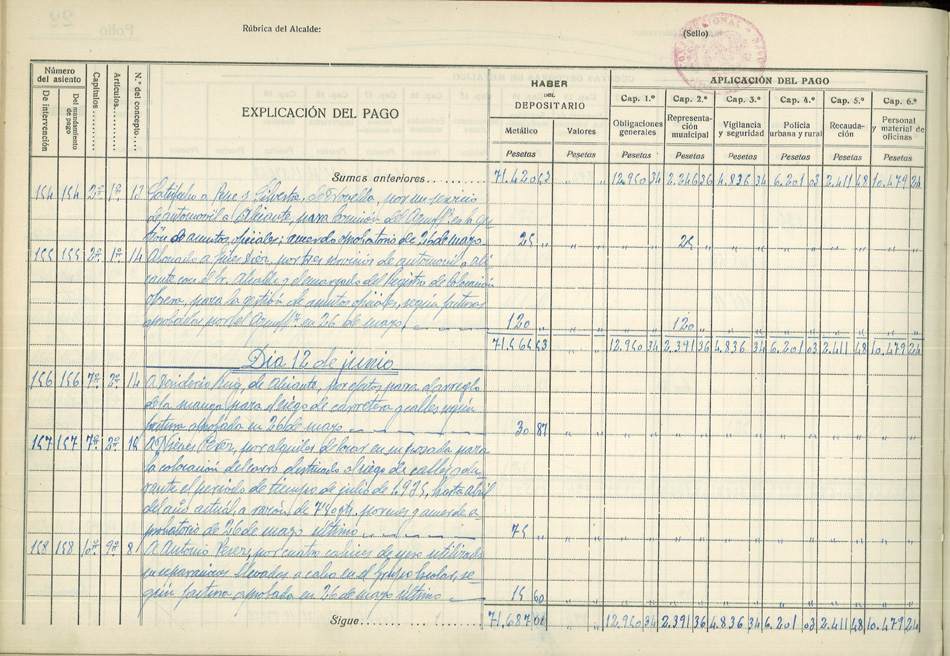 Folio 22
Rúbrica del Alcalde:
(Sello)
Número del asiento
De intervención
Del mandamiento de pago
Capítulos
Artículos
N.º del concepto
EXPLICACIÓN DEL PAGO
HABER DEL DEPOSITARIO
Metálico
Valores
Pesetas
Pesetas
APLICACIÓN DEL PAGO
Cap. 1.º Cap. 2.º Cap. 3.º Cap. 4.º Cap. 5.º Cap. 6.º
Obligaciones generales
Representación municipal
Vigilancia y seguridad
Policía urbana y rural
Recaudación
Personal y material de oficinas
Pesetas Pesetas Pesetas Pesetas Pesetas Pesetas
Sumas anteriores 71.420 53 " " 12.950 34 2.246 36 4.836 34 6.201 03 2.411 48 10.479 24
154 154 2º 1º 13 Satisfecho a Silvestre, de Novelda, por un servicio
de automovil a Alicante, para Comisión del Ayuntº en la ges-
tión de asuntos oficiales; acuerdo aprobatorio de 26 de mayo 25 " 25 "
155 155 2º 1º 14 Abonado a por tres servicios de automovil a Ali-
cante con el Sr. Alcalde y el encargado del Registro de Colocación
obrera, para la gestión de asuntos oficiales, según facturas
aprobadas por el Ayuntº en 26 de mayo 120 " 120 "
71.565 53 12.950 34 2.391 36 4.836 34 6.201 03 2.411 48 10.479 24
Dia 12 de junio
156 156 7º 2º 14 A Desiderio Ruiz, de Alicante, por efectos para el arreglo
de la manga para el riego de carretera y calles según
factura aprobada en 26 de mayo 30 87
157 157 7º 2º 12 A Nieves Pérez, por alquiler del local en su posada para
la colocación del carro destinado al riego de calles du-
rante el período de tiempo de julio de 1935, hasta abril
del año actual, a razón de 7'50 pts. por mes y acuerdo a-
probatorio de 26 de mayo último 75 "
158 158 10º 9º 81 A Antonio Perez, por cuatro cahices de yeso utilizados
en reparaciones llevadas a cabo en el Grupo Escolar, se-
gún factura aprobada en 26 de mayo último 15 60
Sigue 71.687 00 " " 12.950 34 2.391 36 4.836 34 6.201 03 2.411 48 10.479 24